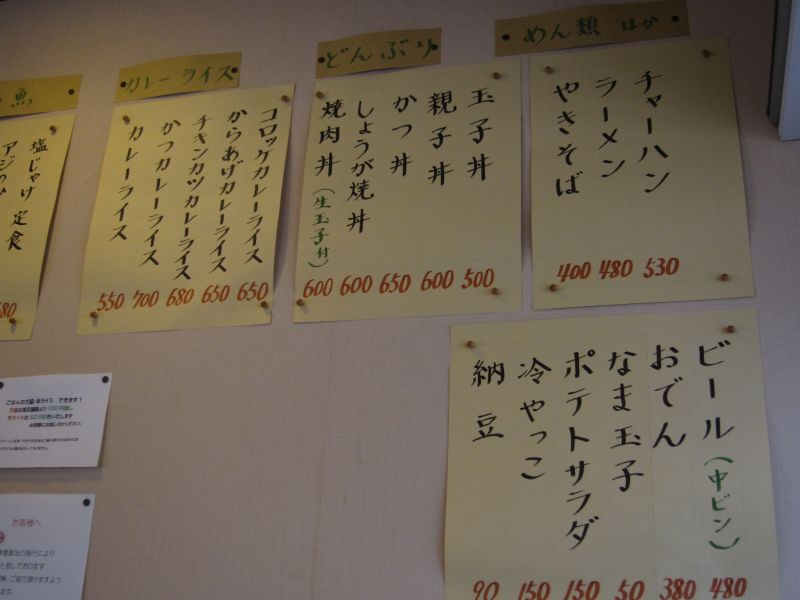 めん類 ほか
チャーハン 530
ラーメン 480
やきそば 400
どんぶり
玉子丼 500
親子丼 600
かつ丼 650
しょうが焼丼 600
焼肉丼(生玉子付) 600
カレーライス
コロッケカレーライス 650
からあげカレーライス 650
チキンカツカレーライス 680
かつカレーライス 700
カレーライス 550
魚
塩じゃけ定食
ビール(中ビン) 480
おでん 380
なま玉子 50
ポテトサラダ 150
冷やっこ 150
納豆 90
ごはんの大盛・半ライス できます!
お客様へ